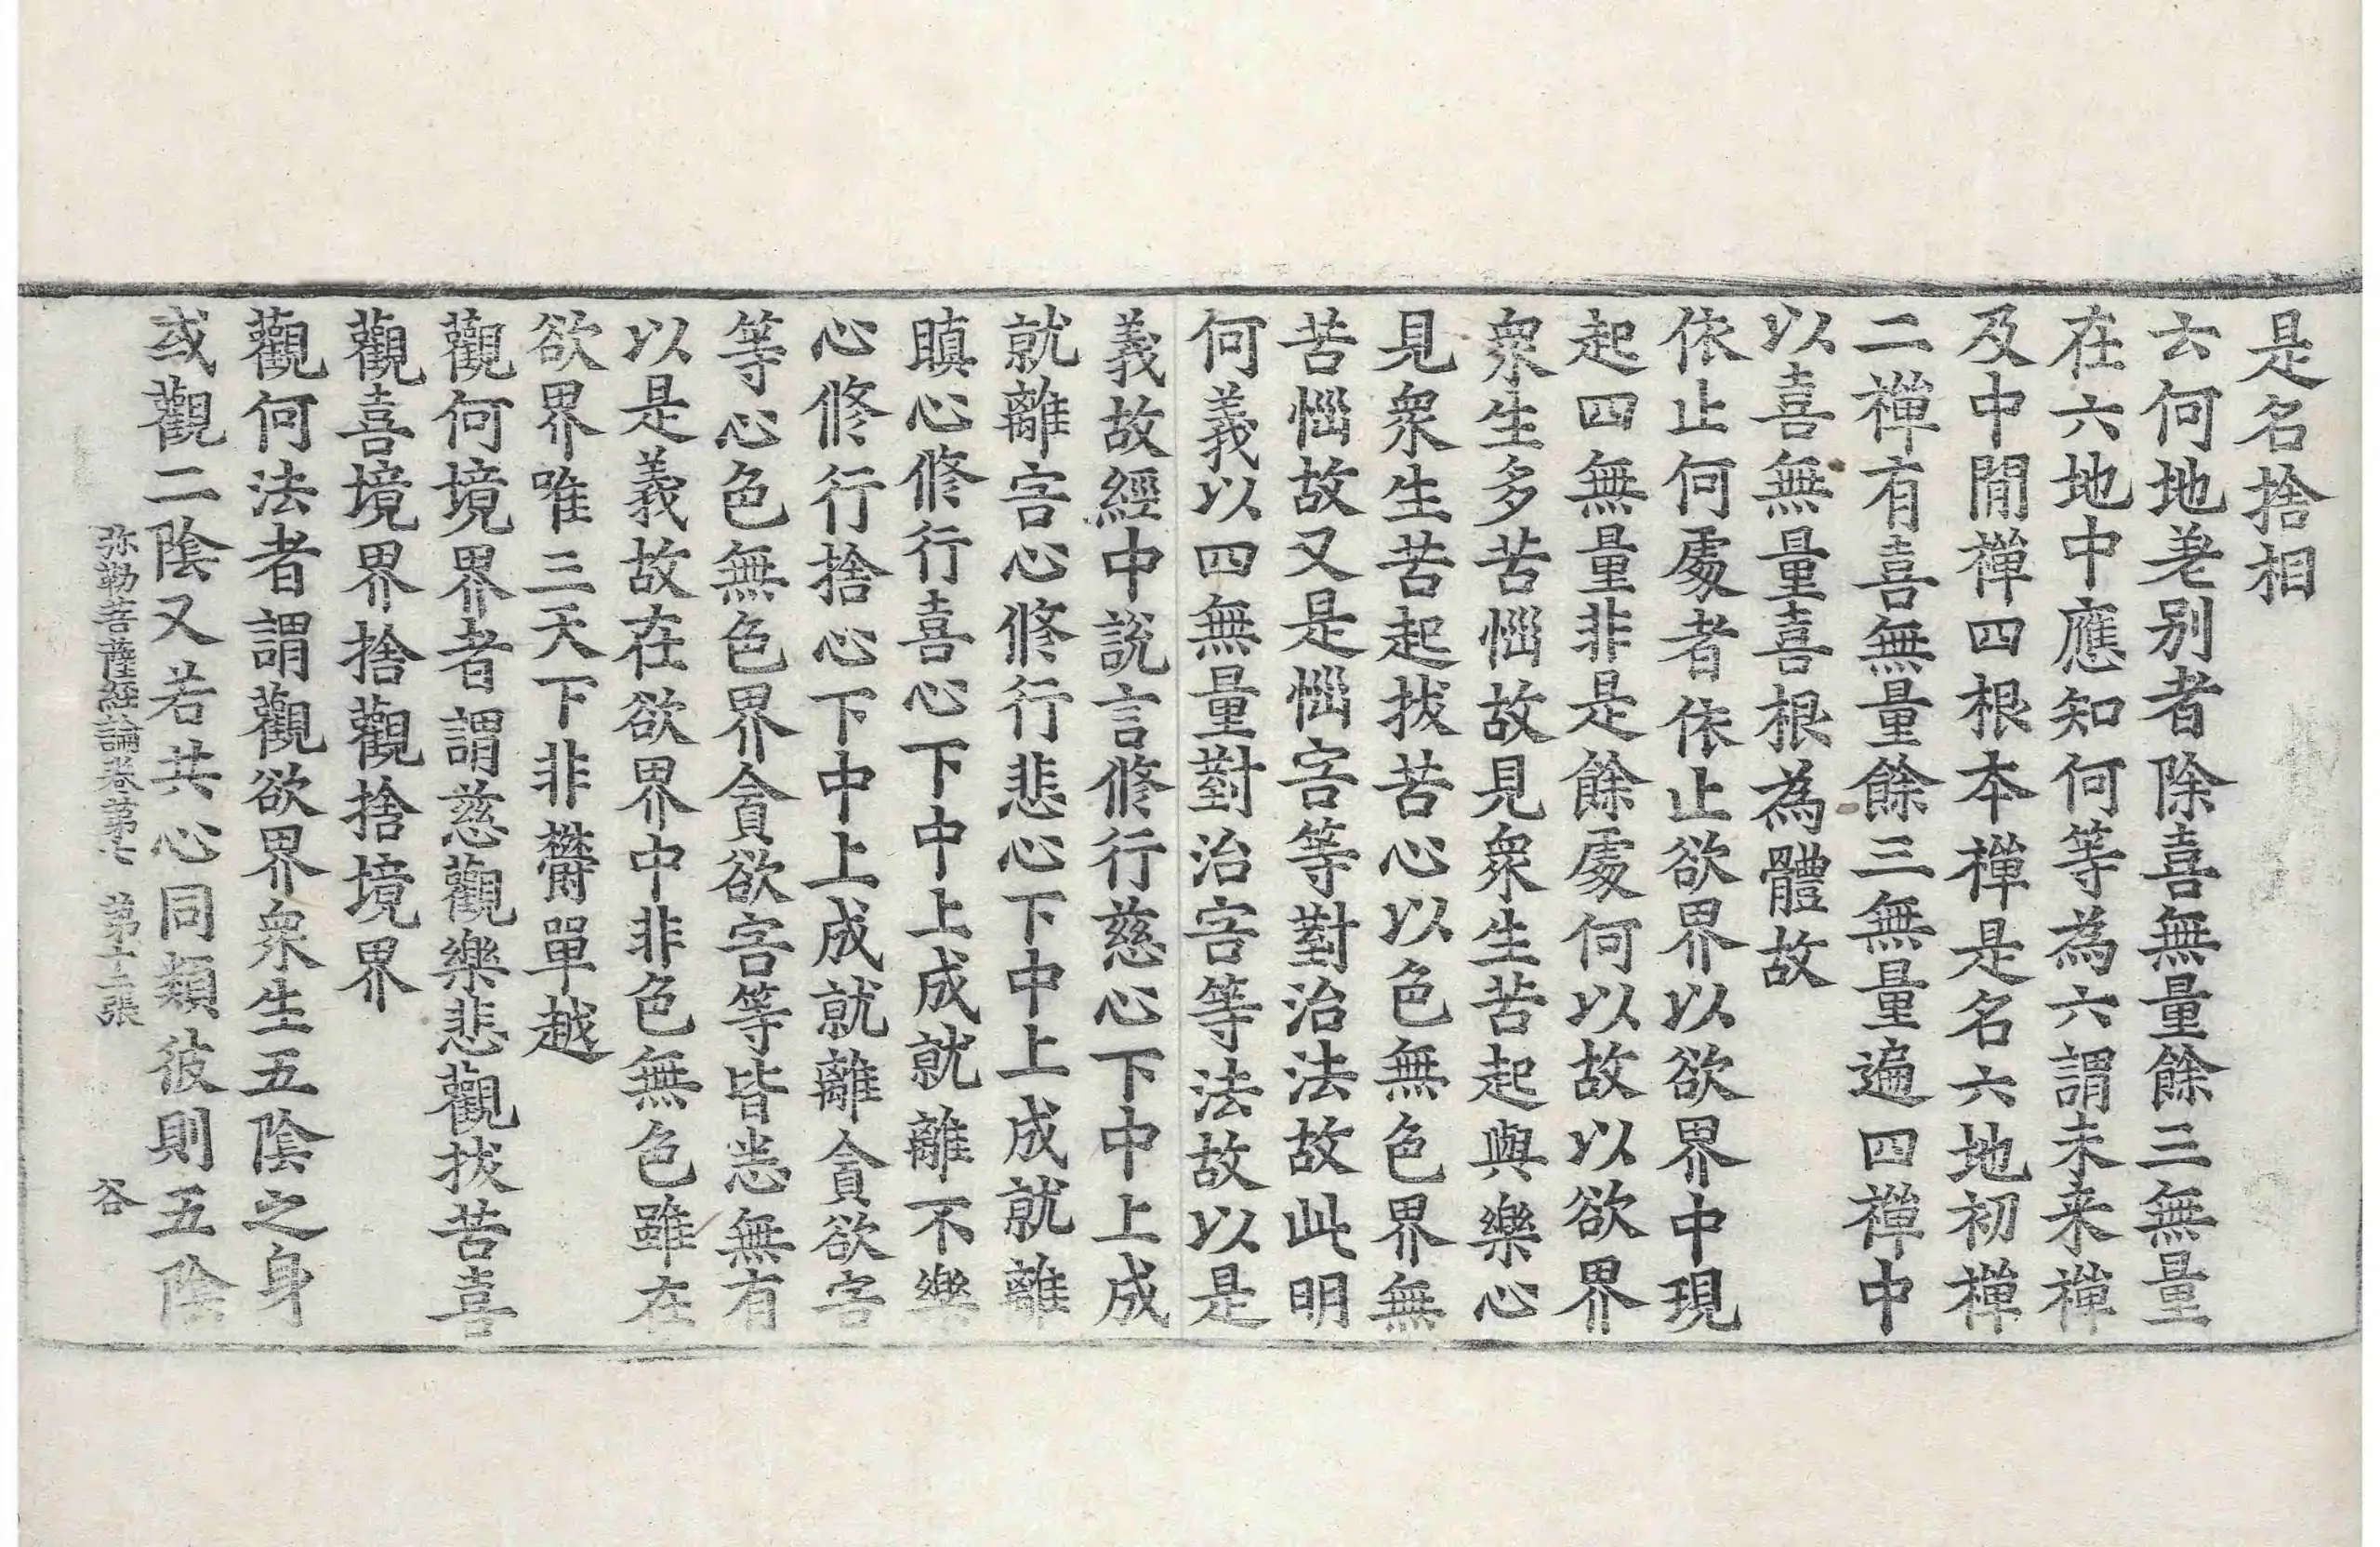 是名捨相
云何地差别者除喜無量餘三無量
在六地中應知何等為六謂未来禪
及中閒禪四根本禪是名六地初禪
二禪有喜無量餘三無量遍四禪中
以喜無量喜根為體故
依止何處者依止欲界以欲界中現
起四無量非是餘處何以故以欲界
衆生多苦惱故見衆生苦起與樂心
見衆生苦起拔苦心以色無色界無
苦惱故又是惱害等對治法故此明
何義以四無量對治害等法故以是
義故經中說言修行慈心下中上成
就離害心修行悲心下中上成就離
瞋心修行喜心下中上成就離不樂
心修行捨心下中上成就離貪欲害
等心色無色界貪欲害等皆悉無有
以是義故在欲界中非色無色雖在
欲界唯三天下非欝單越
觀何境界者謂慈觀樂悲觀拔苦喜
觀喜境界捨觀捨境界
觀何法者謂觀欲界衆生五陰之身
或觀二陰又若共心同類彼則五陰
弥勒菩薩經論卷第七 第十二張 谷